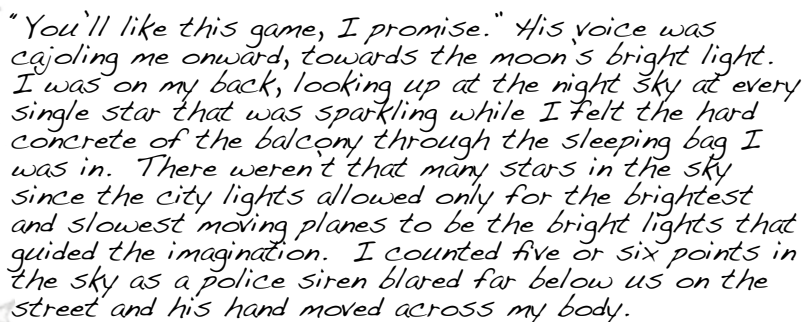 "You'll like this game, I promise." His voice was
cajoling me onward, towards the moon's bright light.
I was on my back, looking up at the night sky at every
single star that was sparkling while I felt the hard
concrete of the balcony through the sleeping bag I
was in. There weren't that many stars in the sky
since the city lights allowed only for the brightest
and slowest moving planes to be the bright lights that
guided the imagination. I counted five or six points in
the sky as a police siren blared far below us on the
street and his hand moved across my body.